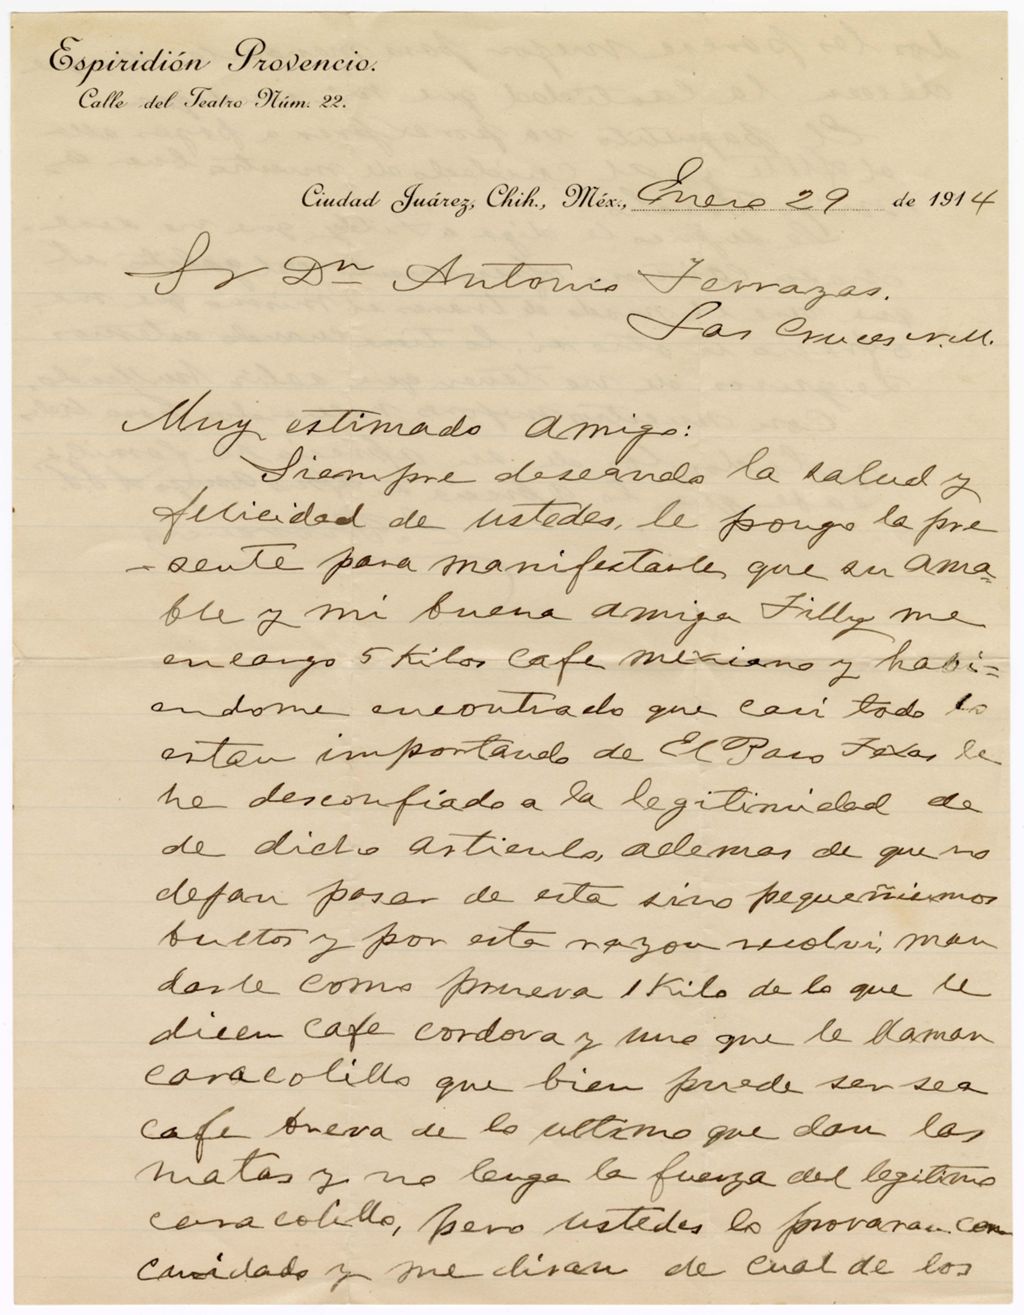 Espiridión Provencio.
Calle del Teatro Núm. 22.
Ciudad Juárez, Chih., Méx., Enero 29 de 1914
Sr Dn Antonio Terrazas.
Las Cruces N.M.
Muy estimado amigo:
Siempre deseando la salud y
felicidad de ustedes, le pongo la pre
-sente para manifestarle, que su ama-
ble y mi buena amiga Filly me
encargo 5 Kilos cafe mexicano y habi=
endome encontrado que casi todo lo
estan importando de El Paso Texas le
he desconfiado a la legitimidad de
de dicho articulo, ademas de que no
dejan pasar de esta sino pequeñisimos
bultos y por esta razon resolvi, man
darle como prueva 1 Kilo de lo que le
dicen cafe cordova y uno que le llaman
caracolillo que bien puede ser sea
cafe de lo ultimo que dan las
matas y no tenga la fuerza del legitimo
caracolillo, pero ustedes lo provaran con
cuidado y me diran de cual de los